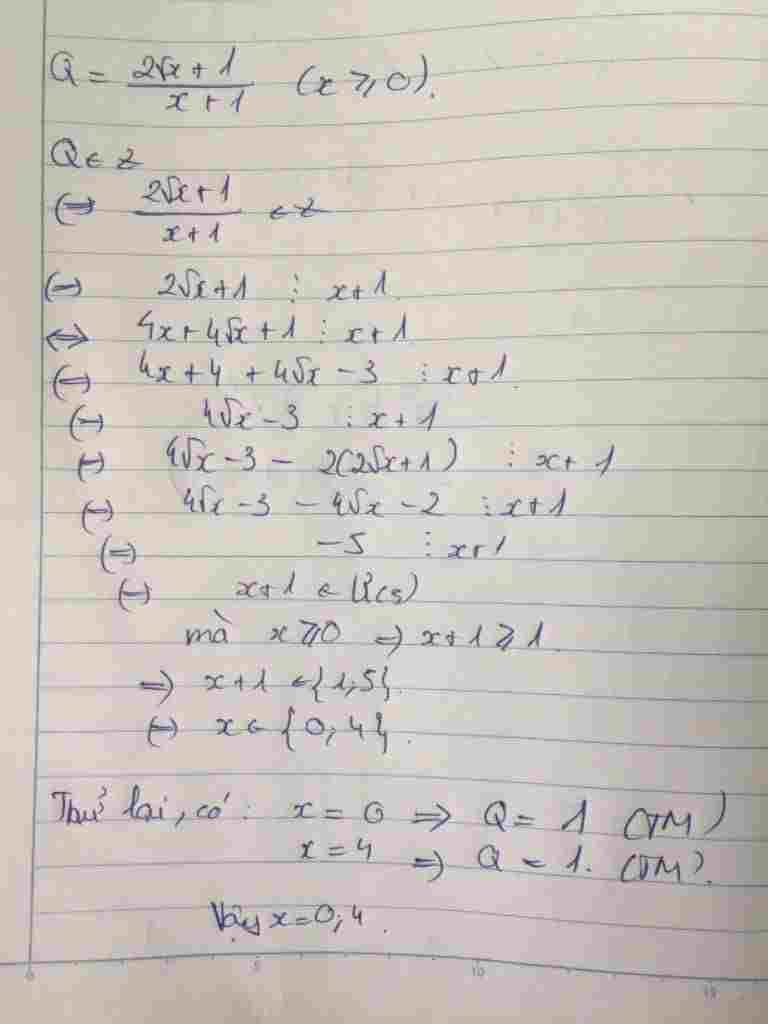 Q = (2√x + 1)/(x + 1) (x ⩾ 0).
Q ∈ Z
(=) (2√x + 1)/(x + 1) ∈ Z
(=) 2√x + 1 ⋮ x + 1
⇔ 4x + 4√x + 1 ⋮ x + 1
(=) 4x + 4 + 4√x − 3 ⋮ x + 1.
(=) 4√x − 3 ⋮ x + 1
(=) 4√x − 3 − 2(2√x + 1) ⋮ x + 1
(=) 4√x − 3 − 4√x − 2 ⋮ x + 1
(=) −5 ⋮ x + 1
(=) x + 1 ∈ Ư(5)
mà x ⩾ 0 =) x + 1 ⩾ 1
=) x + 1 ∈ {1, 5}.
(=) x ∈ {0, 4}.
Thử lại, có: x = 0 => Q = 1 (TM)
x = 4 => Q = 1. (TM).
Vậy x = 0, 4.
0 5 10 15